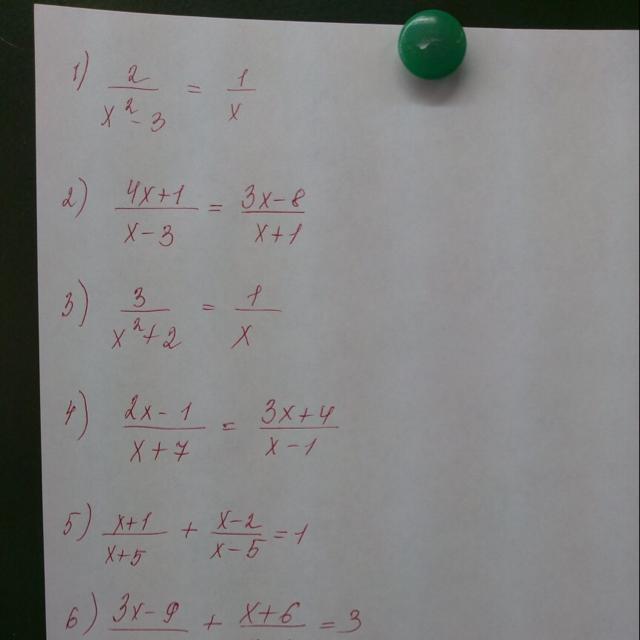 1) 2/(x²-3) = 1/x
2) (4x+1)/(x-3) = (3x-8)/(x+1)
3) 3/(x²+2) = 1/x
4) (2x-1)/(x+7) = (3x+4)/(x-1)
5) (x+1)/(x+5) + (x-2)/(x-5) = 1
6) 3x-9 + x+6 = 3